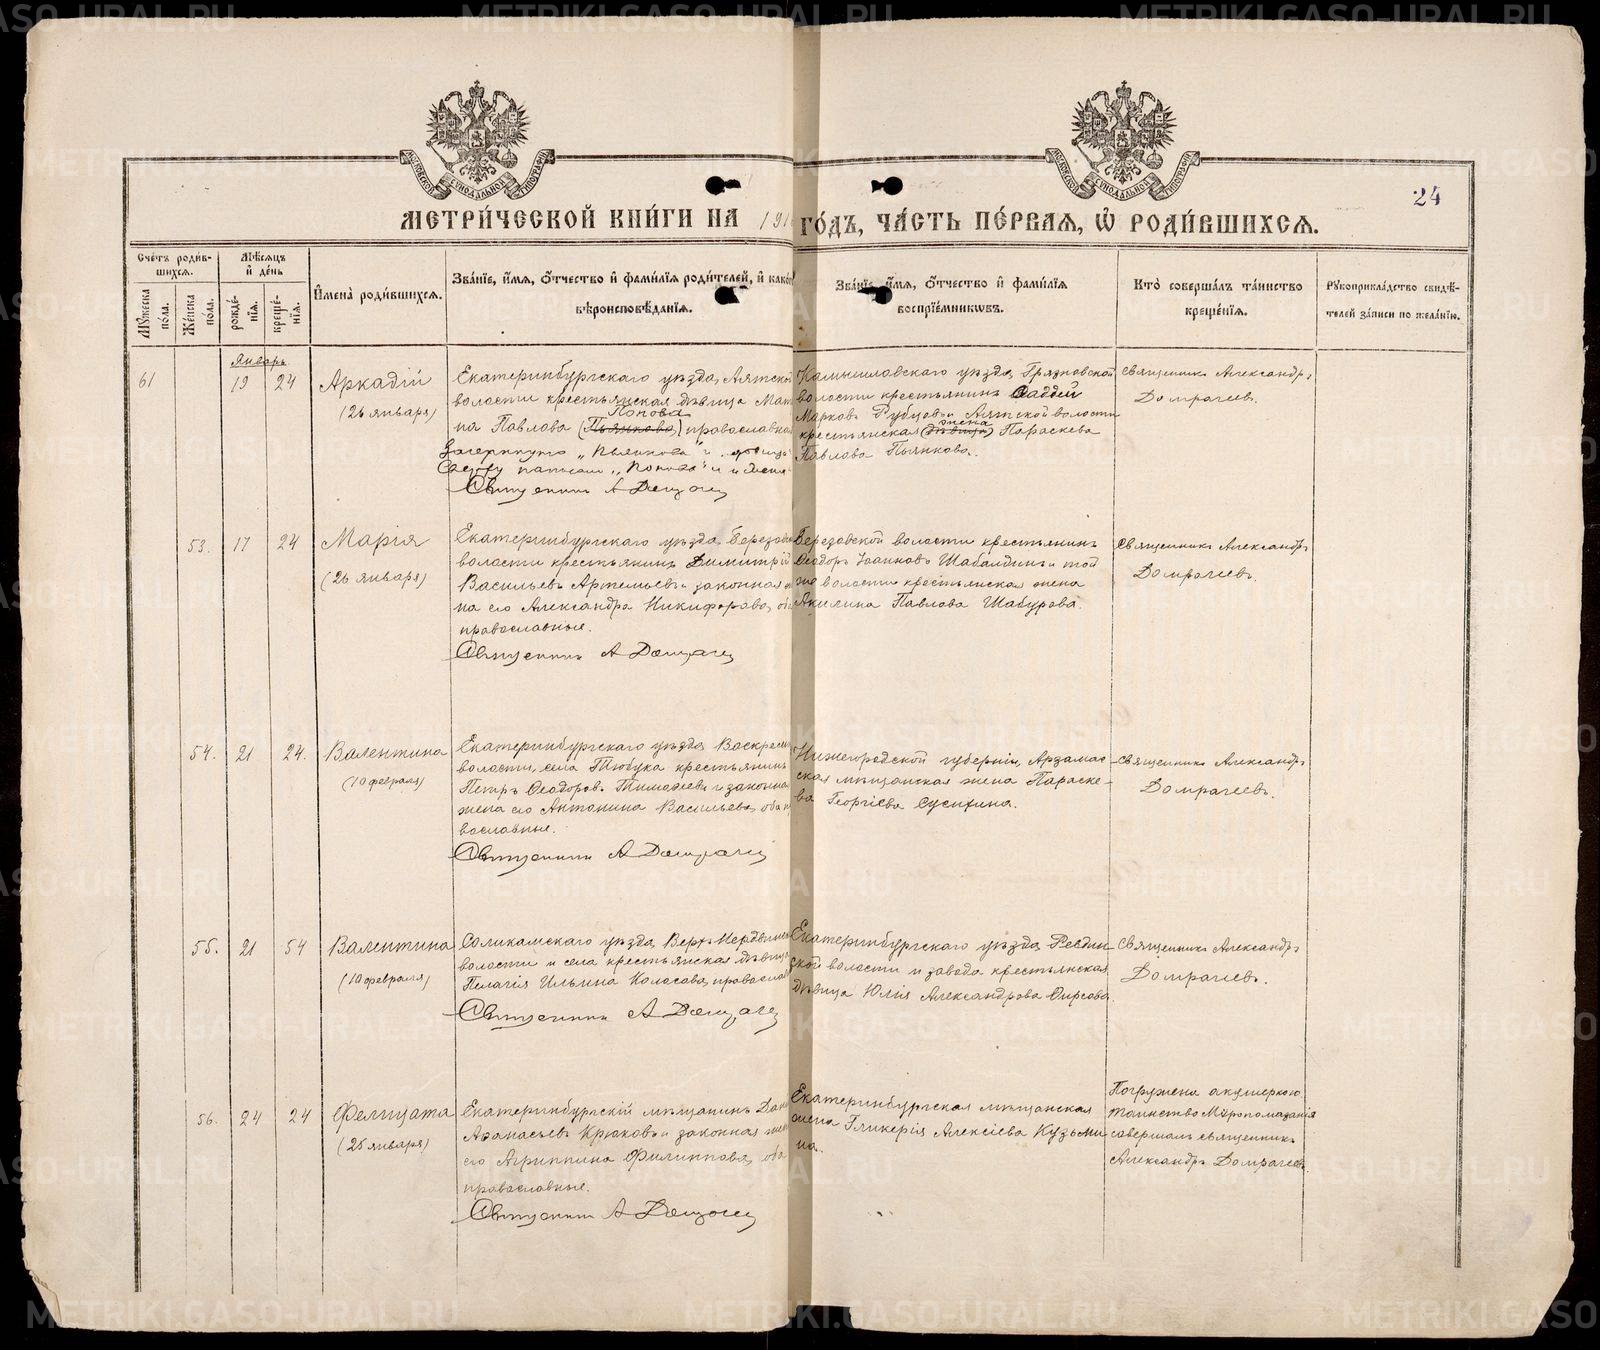 24
МЕТРИ́ЧЕСКОЙ КНИ́ГИ НА 191
ГО́ДЪ, ЧА́СТЬ ПЕ́РВАЯ, Ѿ РОДИ́ВШИХСЯ.
Сче́тъ роди́вшихся.
Му́жеска по́ла.
Же́нска по́ла.
Мѣ́сяцъ и де́нь
рожде́нія.
креще́нія.
Имена̀ роди́вшихся.
Зва́ніе, и́мя, о́тчество и фами́лія роди́телей, и како́
вѣроисповѣ́данія.
Зва́ніе, и́мя, о́тчество и фами́лія
воспріе́мниковъ.
Кто̀ соверша́лъ та́инство
креще́нія.
Рукоприкла́дство свидѣ́-
телей за́писи по жела́нію.
Январь
61
19
24
Аркадій
(26 января)
Екатеринбургскаго уѣзда, Аятской
волости крестьянская дѣвица Мат
Попова
на Павлова (Пьянкова) православной
Зачеркнуто „Пьянкова" и
Сверху написано „Попова" и
Священникъ А Домрачев
Камышловскаго уѣзда, Грязновской
волости крестьянинъ Фаддей
Марковъ Рубцовъ и Аятской волости
жена
крестьянская (дѣвица) Параскева
Павлова Пьянкова.
Священникъ Александръ
Домрачевъ.
53.
17
24
Марія
(26 января)
Екатеринбургскаго уѣзда Березов
волости крестьянинъ Димитрій
Васильевъ Артемьевъ и законная
на его Александра Никифорова, об
православные.
Священникъ А Домрачев
Березовской волости крестьянинъ
Ѳеодоръ Іоанновъ Шабалдинъ и той
же волости крестьянская жена
Акилина Павлова Шабурова.
Священникъ Александръ
Домрачевъ.
54.
21
24.
Валентина
(10 февраля)
Екатеринбургскаго уѣзда Воскресен
волости, села Тюбука крестьянинъ
Петръ Ѳеодоровъ Тимофеевъ и законная
жена его Антонина Васильева, оба п
вославные.
Священникъ А Домрачев
Нижегородской губерніи, Арзамас
ская мѣщанская жена Параске-
ва Георгіева Сусигина.
Священникъ Александръ
Домрачевъ.
55.
21
54
Валентина
(10 февраля)
Соликамскаго уѣзда Верхъ
волости и села крестьянская дѣвица
Пелагія Ильина Колосова, православ
Священникъ А Домрачев
Екатеринбургскаго уѣзда Ревдин-
ской волости и завода крестьянская
дѣвица Юлія Александрова Фирсова.
Священникъ Александръ
Домрачевъ.
56.
24
24
Фелицата
(25 января)
Екатеринбургскій мѣщанинъ Дані
Аѳанасьевъ Крюковъ и законная жен
его Агриппина Филиппова, оба
православные.
Священникъ А Домрачев
Екатеринбургская мѣщанская
жена Гликерія Алексіева Кузьми
на.
Погружена акушеркою
таинство Мѵропомазанія
совершалъ священникъ
Александръ Домрачевъ